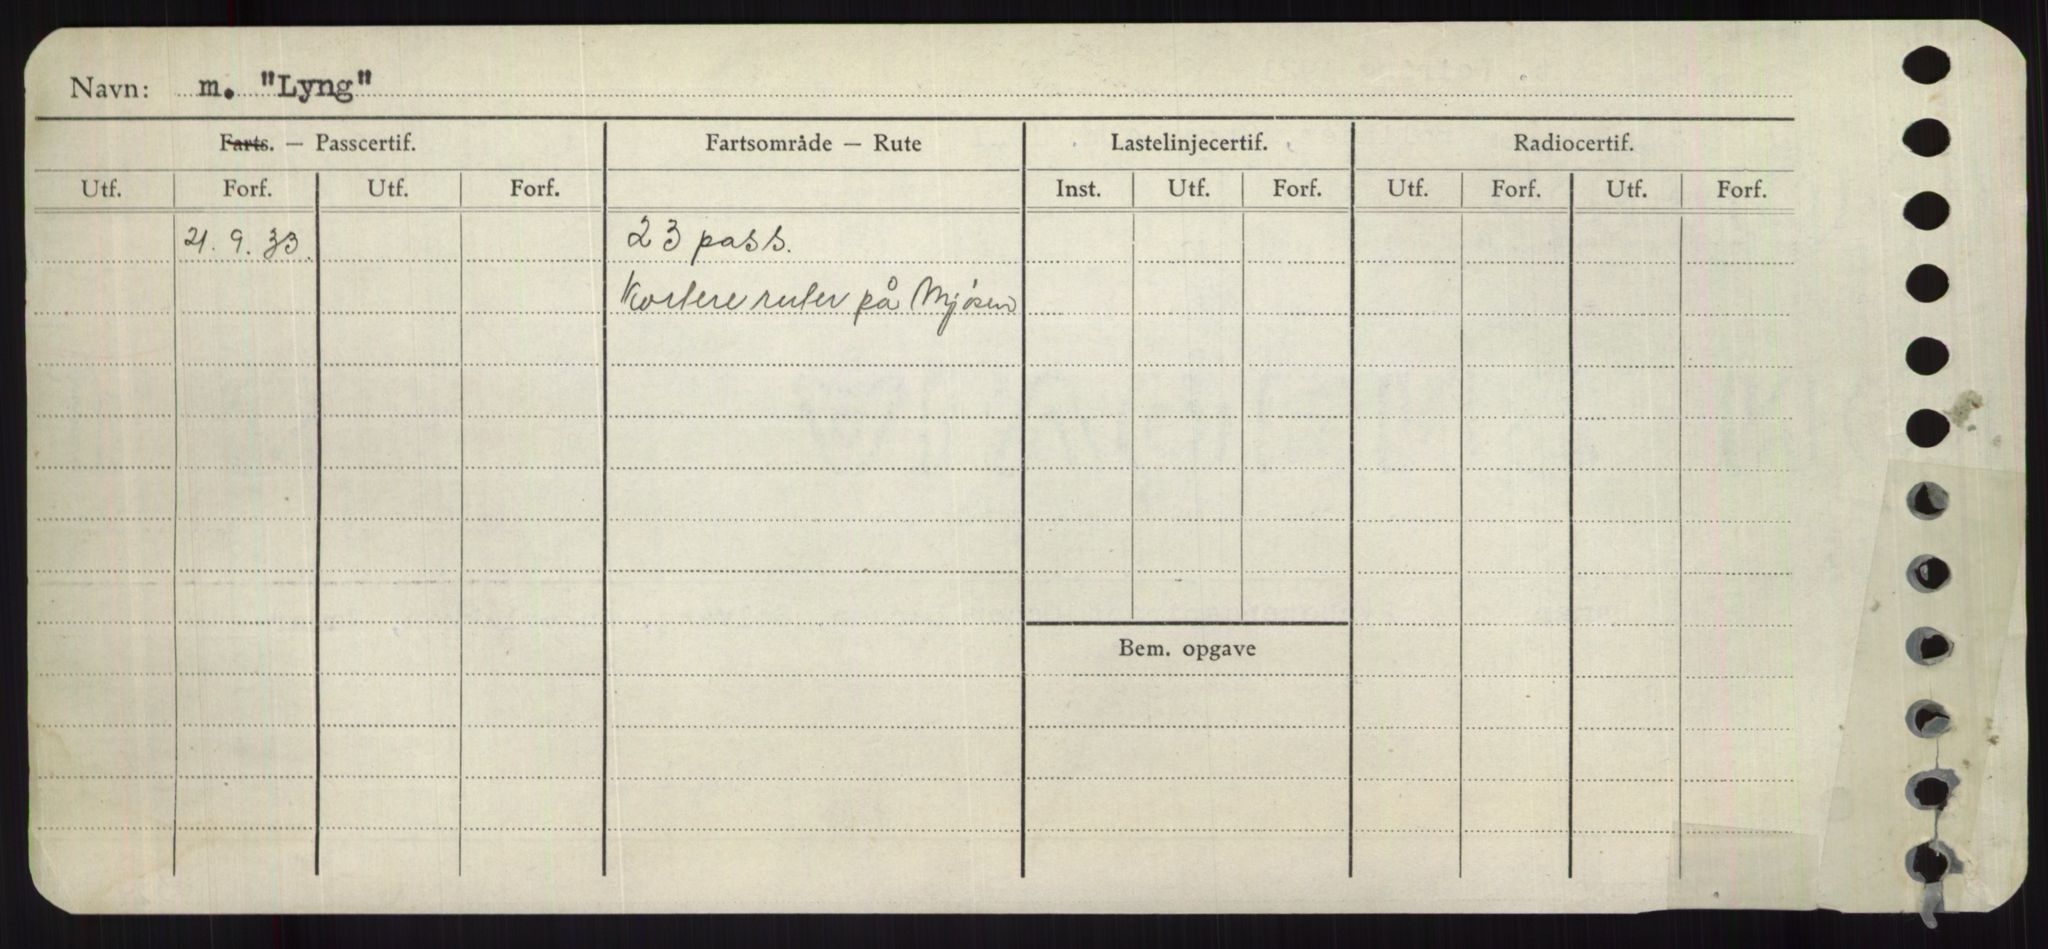 Navn: m. "Lyng"
Farts. — Passcertif. Fartsområde — Rute Lastelinjecertif. Radiocertif.
Utf. Forf. Utf. Forf. Inst. Utf. Forf. Utf. Forf. Utf. Forf.
21. 9. 33. 23 pass.
Kortere ruter på Mjøsen
Bem. opgave